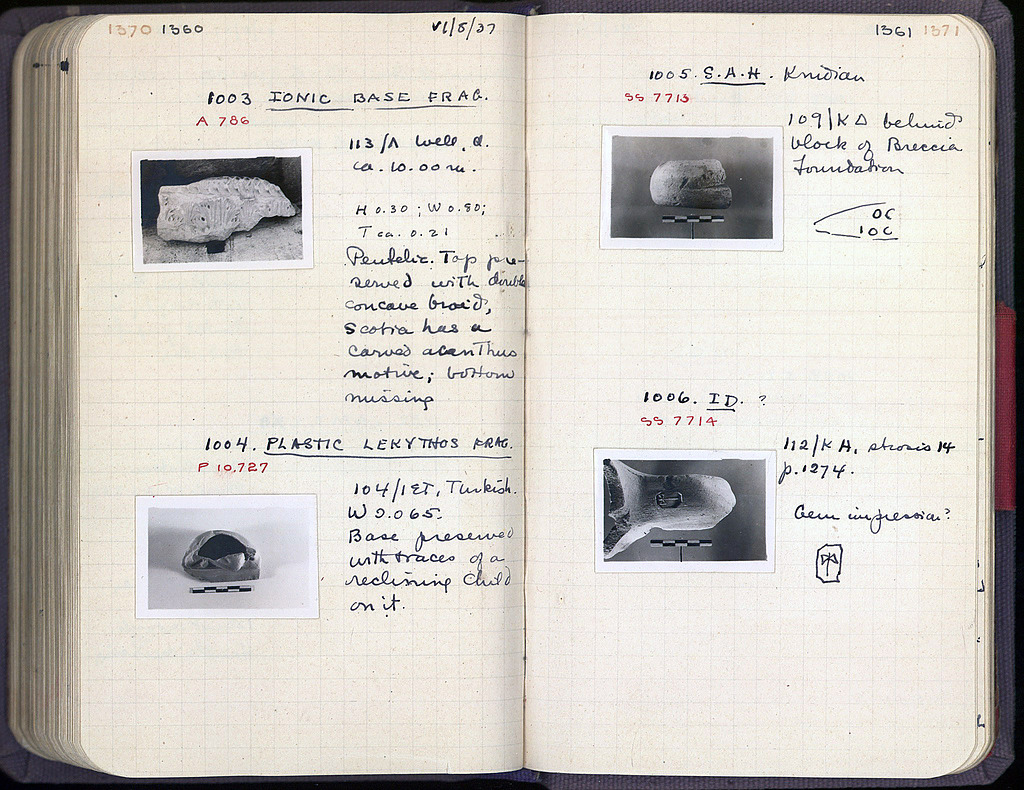 1370 1360
VI/8/37
1003 IONIC BASE FRAG.
A 786
113/Λ well, d.
ca. 10.00 m.
H 0.30; W 0.50;
T ca. 0.21
Pentelic. Top pre-
served with double
concave braid,
Scotia has a
carved acanthus
motive; bottom
missing
1004. PLASTIC LEKYTHOS FRAG.
P 10,727
104/ΙΣΤ, Turkish.
W 0.065.
Base preserved
with traces of a
reclining child
on it.
1361 1371
1005. S.A.H. Knidian
SS 7713
109/ΚΔ behind
block of Breccia
Foundation
ΟC
ΙΟC
1006. ID. ?
SS 7714
112/ΚΑ, strosis 14
p. 1274.
Gem impression?